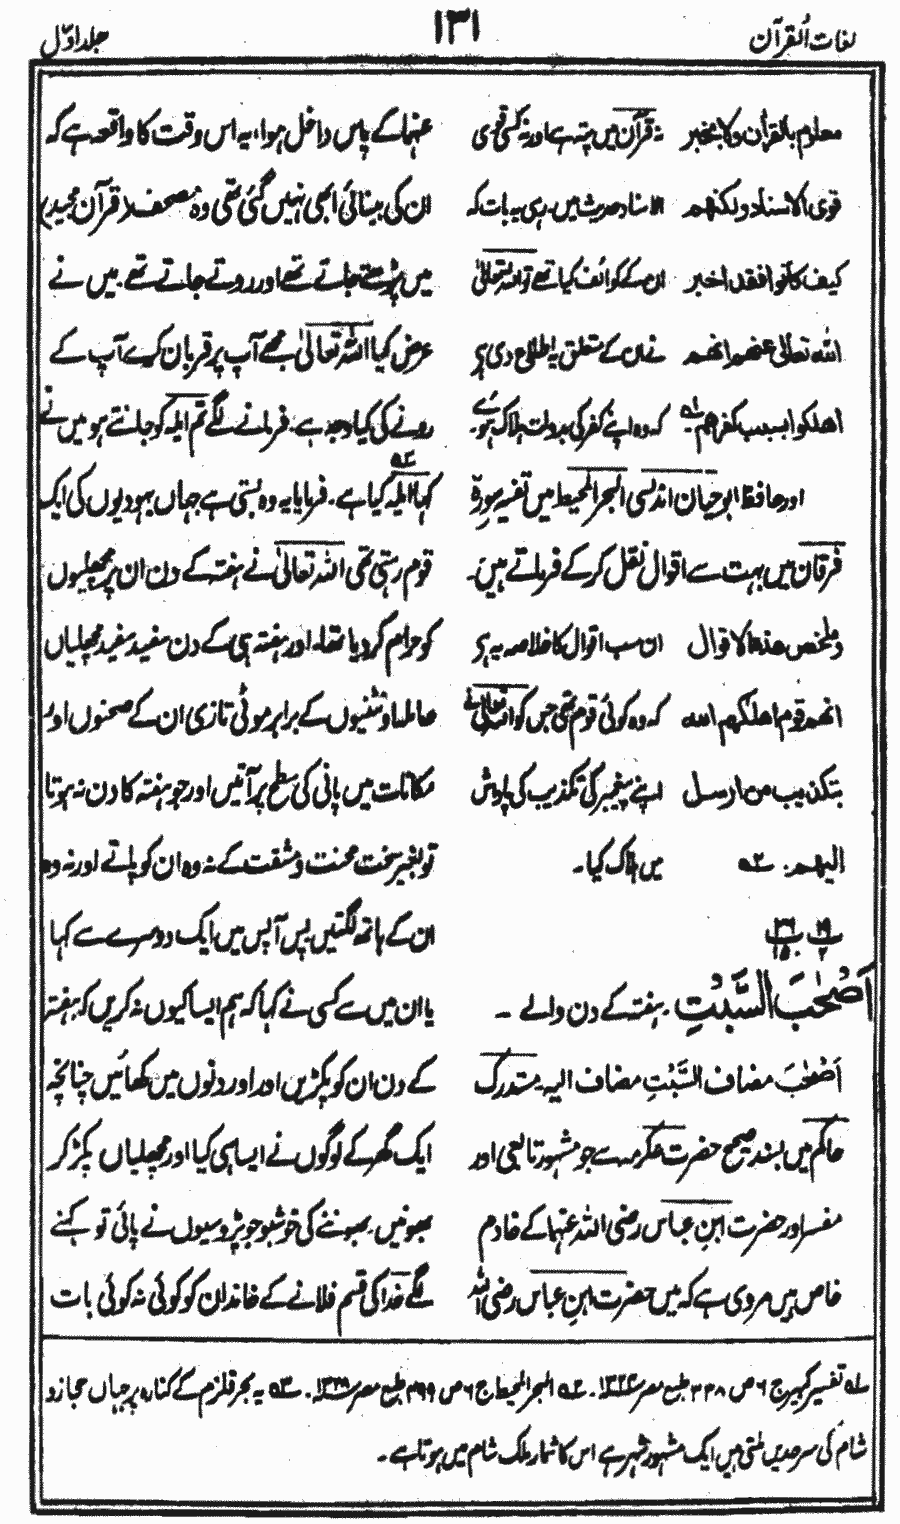 لغات القرآن
۱۳۱
جلد اوّل
معلوم بالقرآن ولا بخبر نہ قرآن میں پتہ ہے اور نہ کسی قوی
قوی الاسناد ولکنھم الاسناد حدیث میں، رہی یہ بات کہ
کیف کانوا فقد اخبر ان کے کوائف کیا تھے تو اللہ تعالیٰ
اللہ تعالیٰ عنھم انھم نے ان کے متعلق یہ اطلاع دی ہے
اھلکوا بسبب کفرھم لہ کہ وہ اپنے کفر کی بدولت ہلاک ہوئے۔
اور حافظ ابو حیان اندلسی البحر المحیط میں تفسیر سورۃ
فرقان میں بہت سے اقوال نقل کر کے فرماتے ہیں۔
وملخص ھذہ الاقوال ان سب اقوال کا خلاصہ یہ ہے
انھم قوم اھلکھم اللہ کہ وہ کوئی قوم تھی جس کو اللہ تعالیٰ نے
بتکذیب من ارسل اپنے پیغمبر کی تکذیب کی پاداش
الیھم۔ ۲ میں ہلاک کیا۔
۱۹ ۳۱
۲ ۱۵
اَصْحٰبَ السَّبْتِ۔ ہفتہ کے دن والے۔
اَصْحٰبَ مضاف السَّبْتِ مضاف الیہ۔ مستدرک
حاکم میں بسند صحیح حضرت عکرمہ سے جو مشہور تابعی اور
مفسر اور حضرت ابن عباس رضی اللہ عنہما کے خادم
خاص ہیں مروی ہے کہ میں حضرت ابن عباس رضی اللہ
عنہما کے پاس داخل ہوا، یہ اس وقت کا واقعہ ہے کہ
ان کی بینائی ابھی نہیں گئی تھی وہ مصحف (قرآن مجید)
میں پڑھتے جاتے تھے اور روتے جاتے تھے۔ میں نے
عرض کیا اللہ تعالیٰ مجھے آپ پر قربان کرے آپ کے
رونے کی کیا وجہ ہے۔ فرمانے لگے تم ایلہ کو جانتے ہو میں نے
کہا ایلہ ۳ کیا ہے۔ فرمایا یہ وہ بستی ہے جہاں یہودیوں کی ایک
قوم رہتی تھی اللہ تعالیٰ نے ہفتہ کے دن ان پر مچھلیوں
کو حرام کر دیا تھا۔ اور ہفتہ ہی کے دن سفید سفید مچھلیاں
حاملہ اونٹنیوں کے برابر موٹی تازی ان کے صحنوں اور
مکانات میں پانی کی سطح پر آتیں اور جو ہفتہ کا دن نہ ہوتا
تو بغیر سخت محنت و مشقت کے نہ وہ ان کو پاتے اور نہ وہ
ان کے ہاتھ لگتیں پس آپس میں ایک دوسرے سے کہا
یا ان میں سے کسی نے کہا کہ ہم ایسا کیوں نہ کریں کہ ہفتہ
کے دن ان کو پکڑیں اور اور دنوں میں کھائیں چنانچہ
ایک گھر کے لوگوں نے ایسا ہی کیا اور مچھلیاں پکڑ کر
بھونیں۔ بھوننے کی خوشبو جو پڑوسیوں نے پائی تو کہنے
لگے خدا کی قسم فلانے کے خاندان کو کوئی نہ کوئی بات
لہ تفسیر کبیر ج ۶ ص ۳۳۸ طبع مصر ۱۳۲۴۔ ۲ البحر المحیط ج ۶ ص ۴۹۹ طبع مصر ۱۳۲۸۔ ۳ یہ بحر قلزم کے کنارہ پر جہاں حجاز و
شام کی سرحدیں ملتی ہیں ایک مشہور شہر ہے اس کا شمار ملک شام میں ہوتا ہے۔